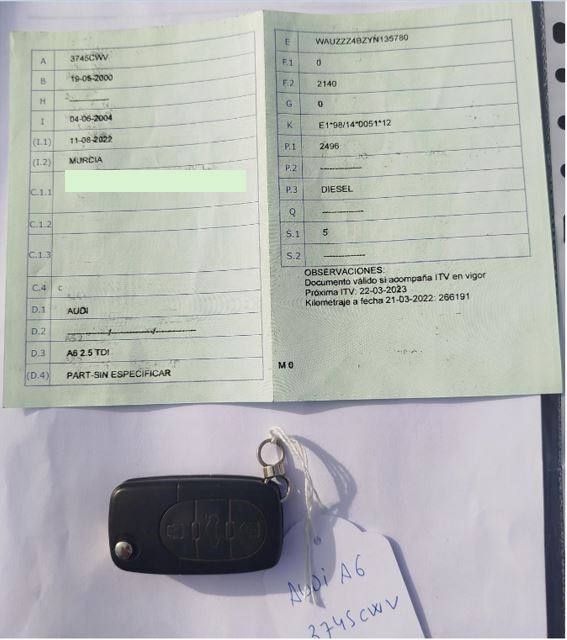 A 3745CWV
B 19-05-2000
H ------------
I 04-06-2004
(I.1) 11-08-2022
(I.2) MURCIA
C.1.1
C.1.2
C.1.3
C.4 C
D.1 AUDI
D.2 ------------/------------/------------
D.3 A6 2.5 TDI
(D.4) PART-SIN ESPECIFICAR
E WAUZZZ4BZYN135780
F.1 0
F.2 2140
G 0
K E1*98/14*0051*12
P.1 2496
P.2 ------------
P.3 DIESEL
Q ------------
S.1 5
S.2 ------------
OBSERVACIONES:
Documento válido si acompaña ITV en vigor
Próxima ITV: 22-03-2023
Kilometraje a fecha 21-03-2022: 266191
M 0
AUDi A6
3745CWV